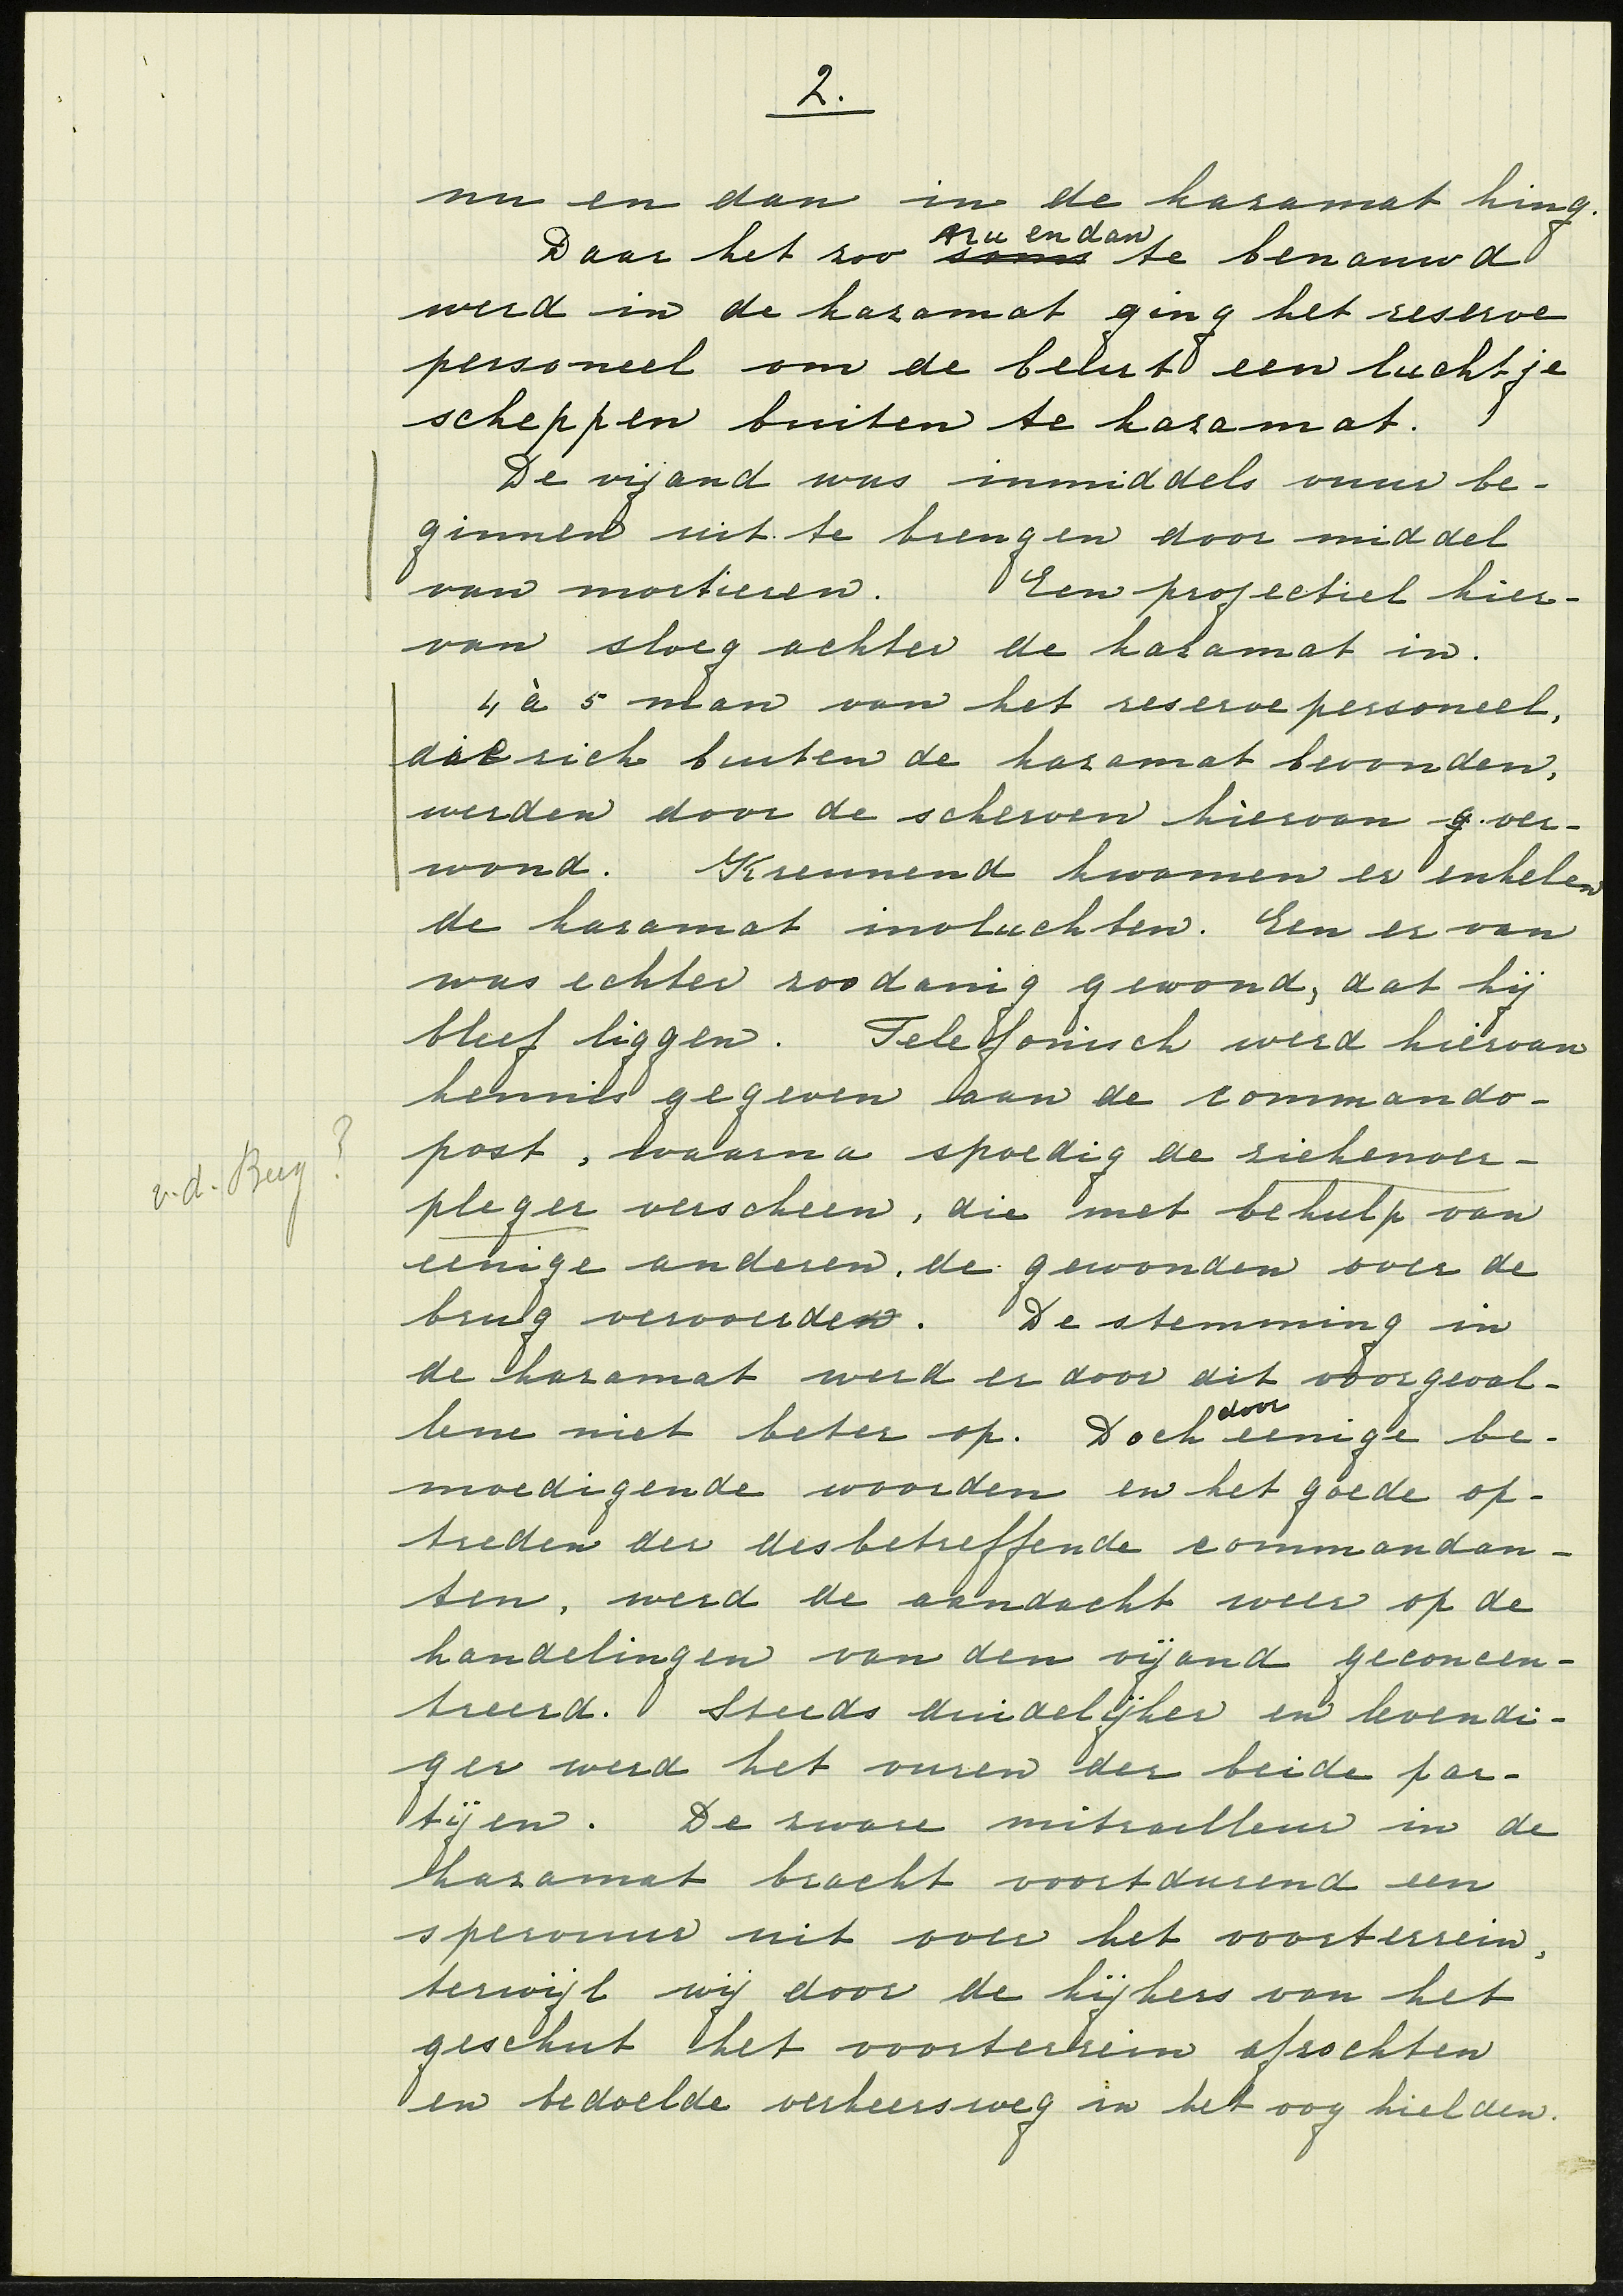 2.
nu en dan in de kazamat hing.
Daar het zoo soms nu en dan te benauwd
werd in de kazamat ging het reserve
personeel om de beurt een luchtje
scheppen buiten te kazamat.
De vijand was inmiddels vuur be-
ginnen uit te brengen door middel
van mortieren. Een projectiel hier-
van sloeg achter de kazamat in.
4 à 5 man van het reservepersoneel,
die zich buiten de kazamat bevonden,
werden door de scherven hiervan g. ver-
wond. Kreunend kwamen er enkelen
de kazamat invluchten. Een er van
was echter zoodanig gewond, dat hij
bleef liggen. Telefonisch werd hiervan
kennis gegeven aan de commando-
post, waarna spoedig de ziekenver-
v.d. Berg ?
pleger verscheen, die met behulp van
eenige anderen, de gewonden over de
brug vervoerden. De stemming in
de kazamat werd er door dit voorgeval-
lene niet beter op. Doch door eenige be-
moedigende woorden en het goede op-
treden der desbetreffende commandan-
ten, werd de aandacht weer op de
handelingen van den vijand geconcen-
treerd. Steeds duidelijker en levendi-
ger werd het vuren der beide par-
tijen. De zware mitrailleur in de
kazamat bracht voortdurend een
spervuur uit over het voorterrein,
terwijl wij door de kijkers van het
geschut het voorterrein afzochten
en bedoelde verkeersweg in het oog hielden.